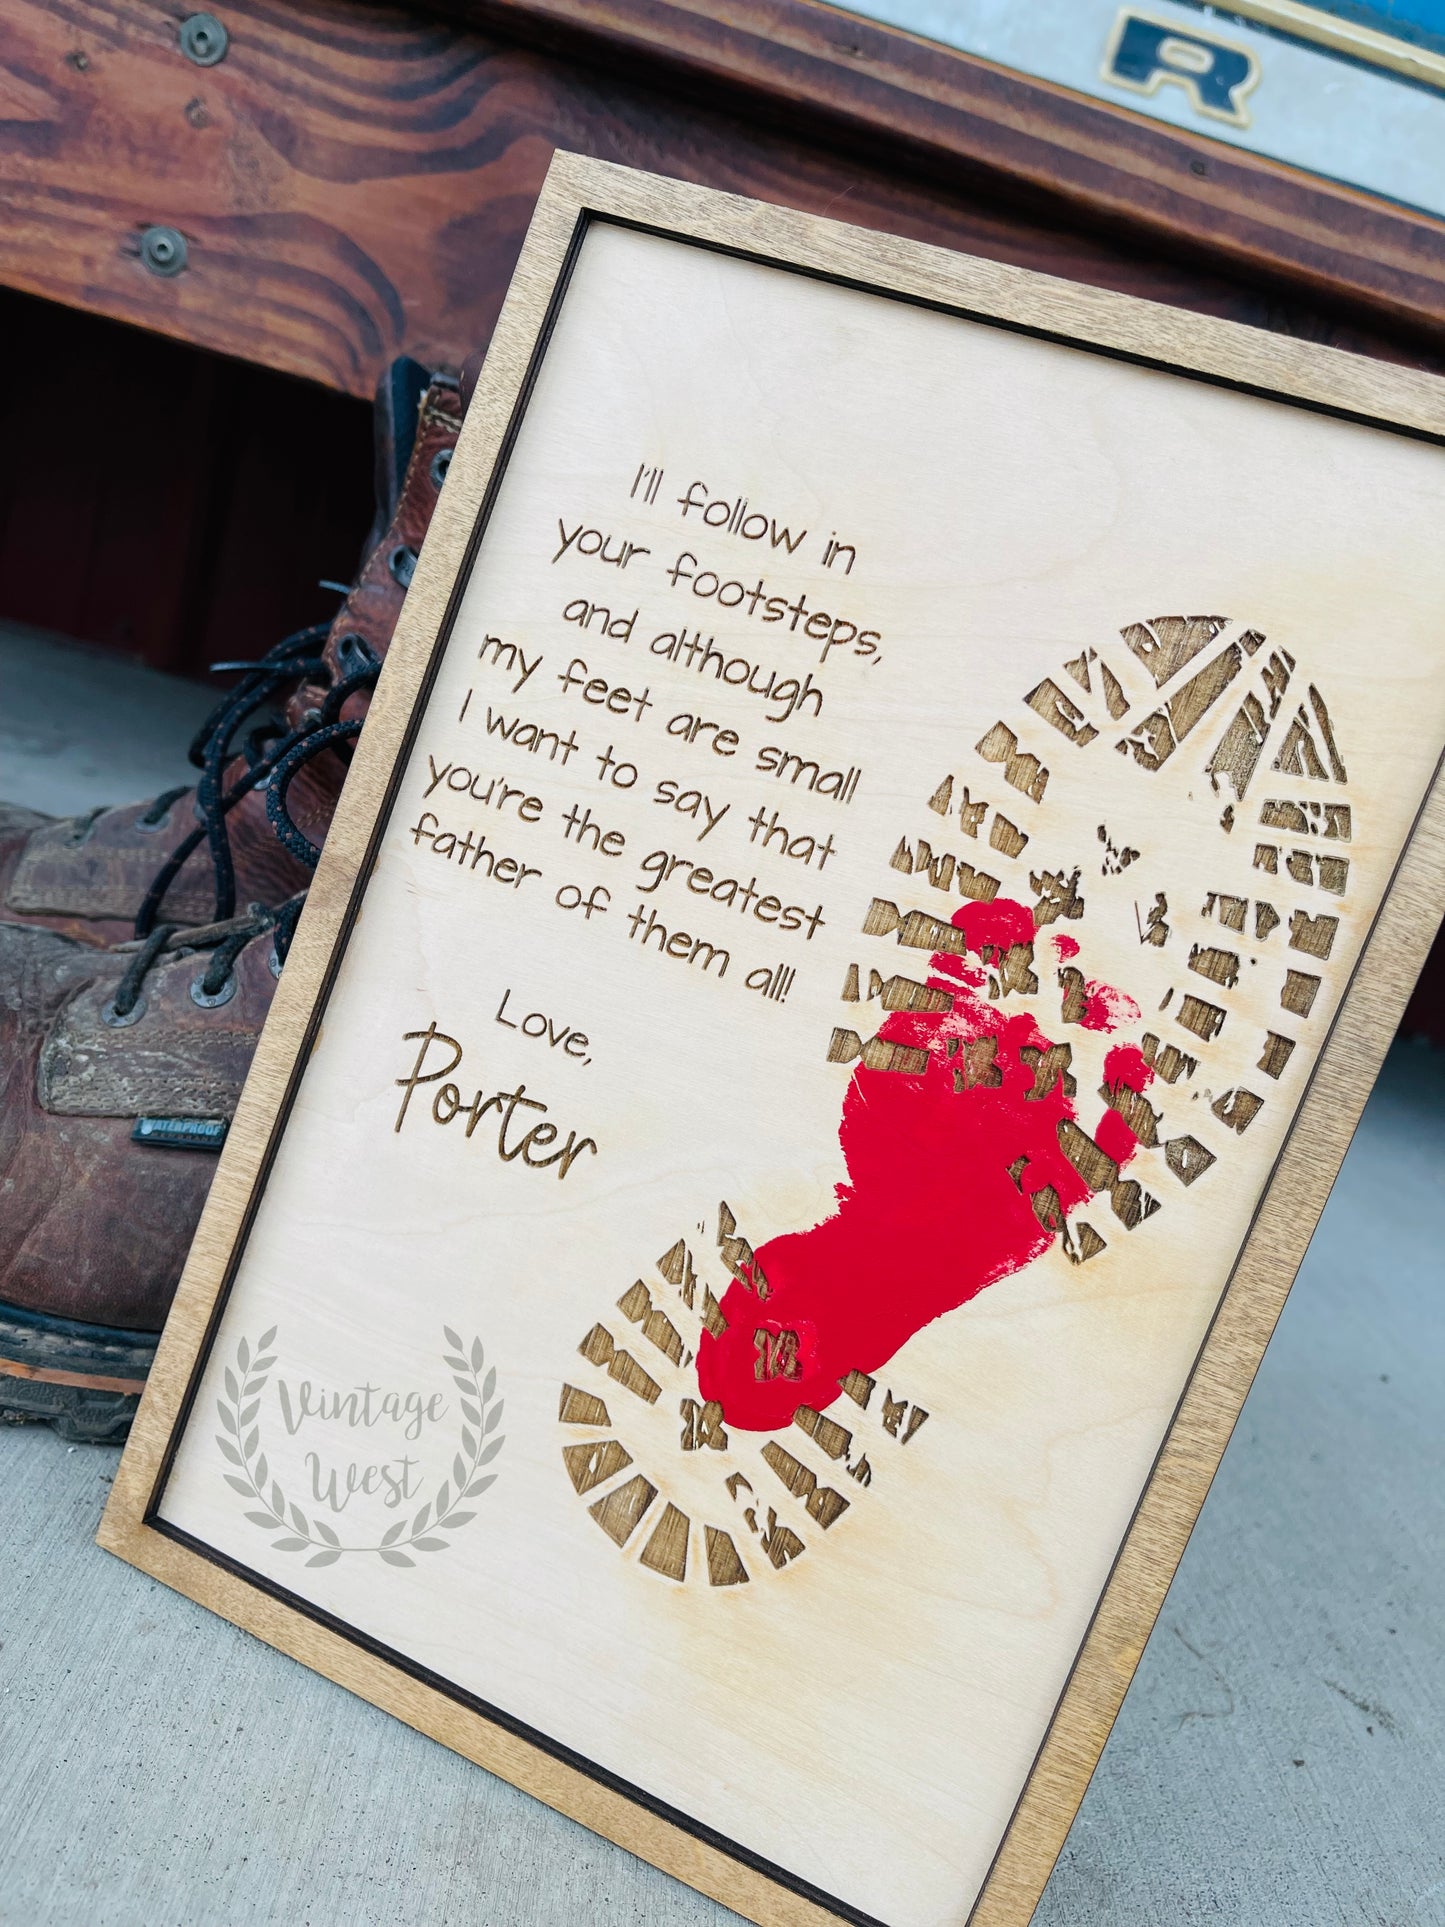 R
I'll follow in
your footsteps,
and although
my feet are small
I want to say that
you're the greatest
father of them all!
Love,
Porter
WATERPROOF
Vintage
West